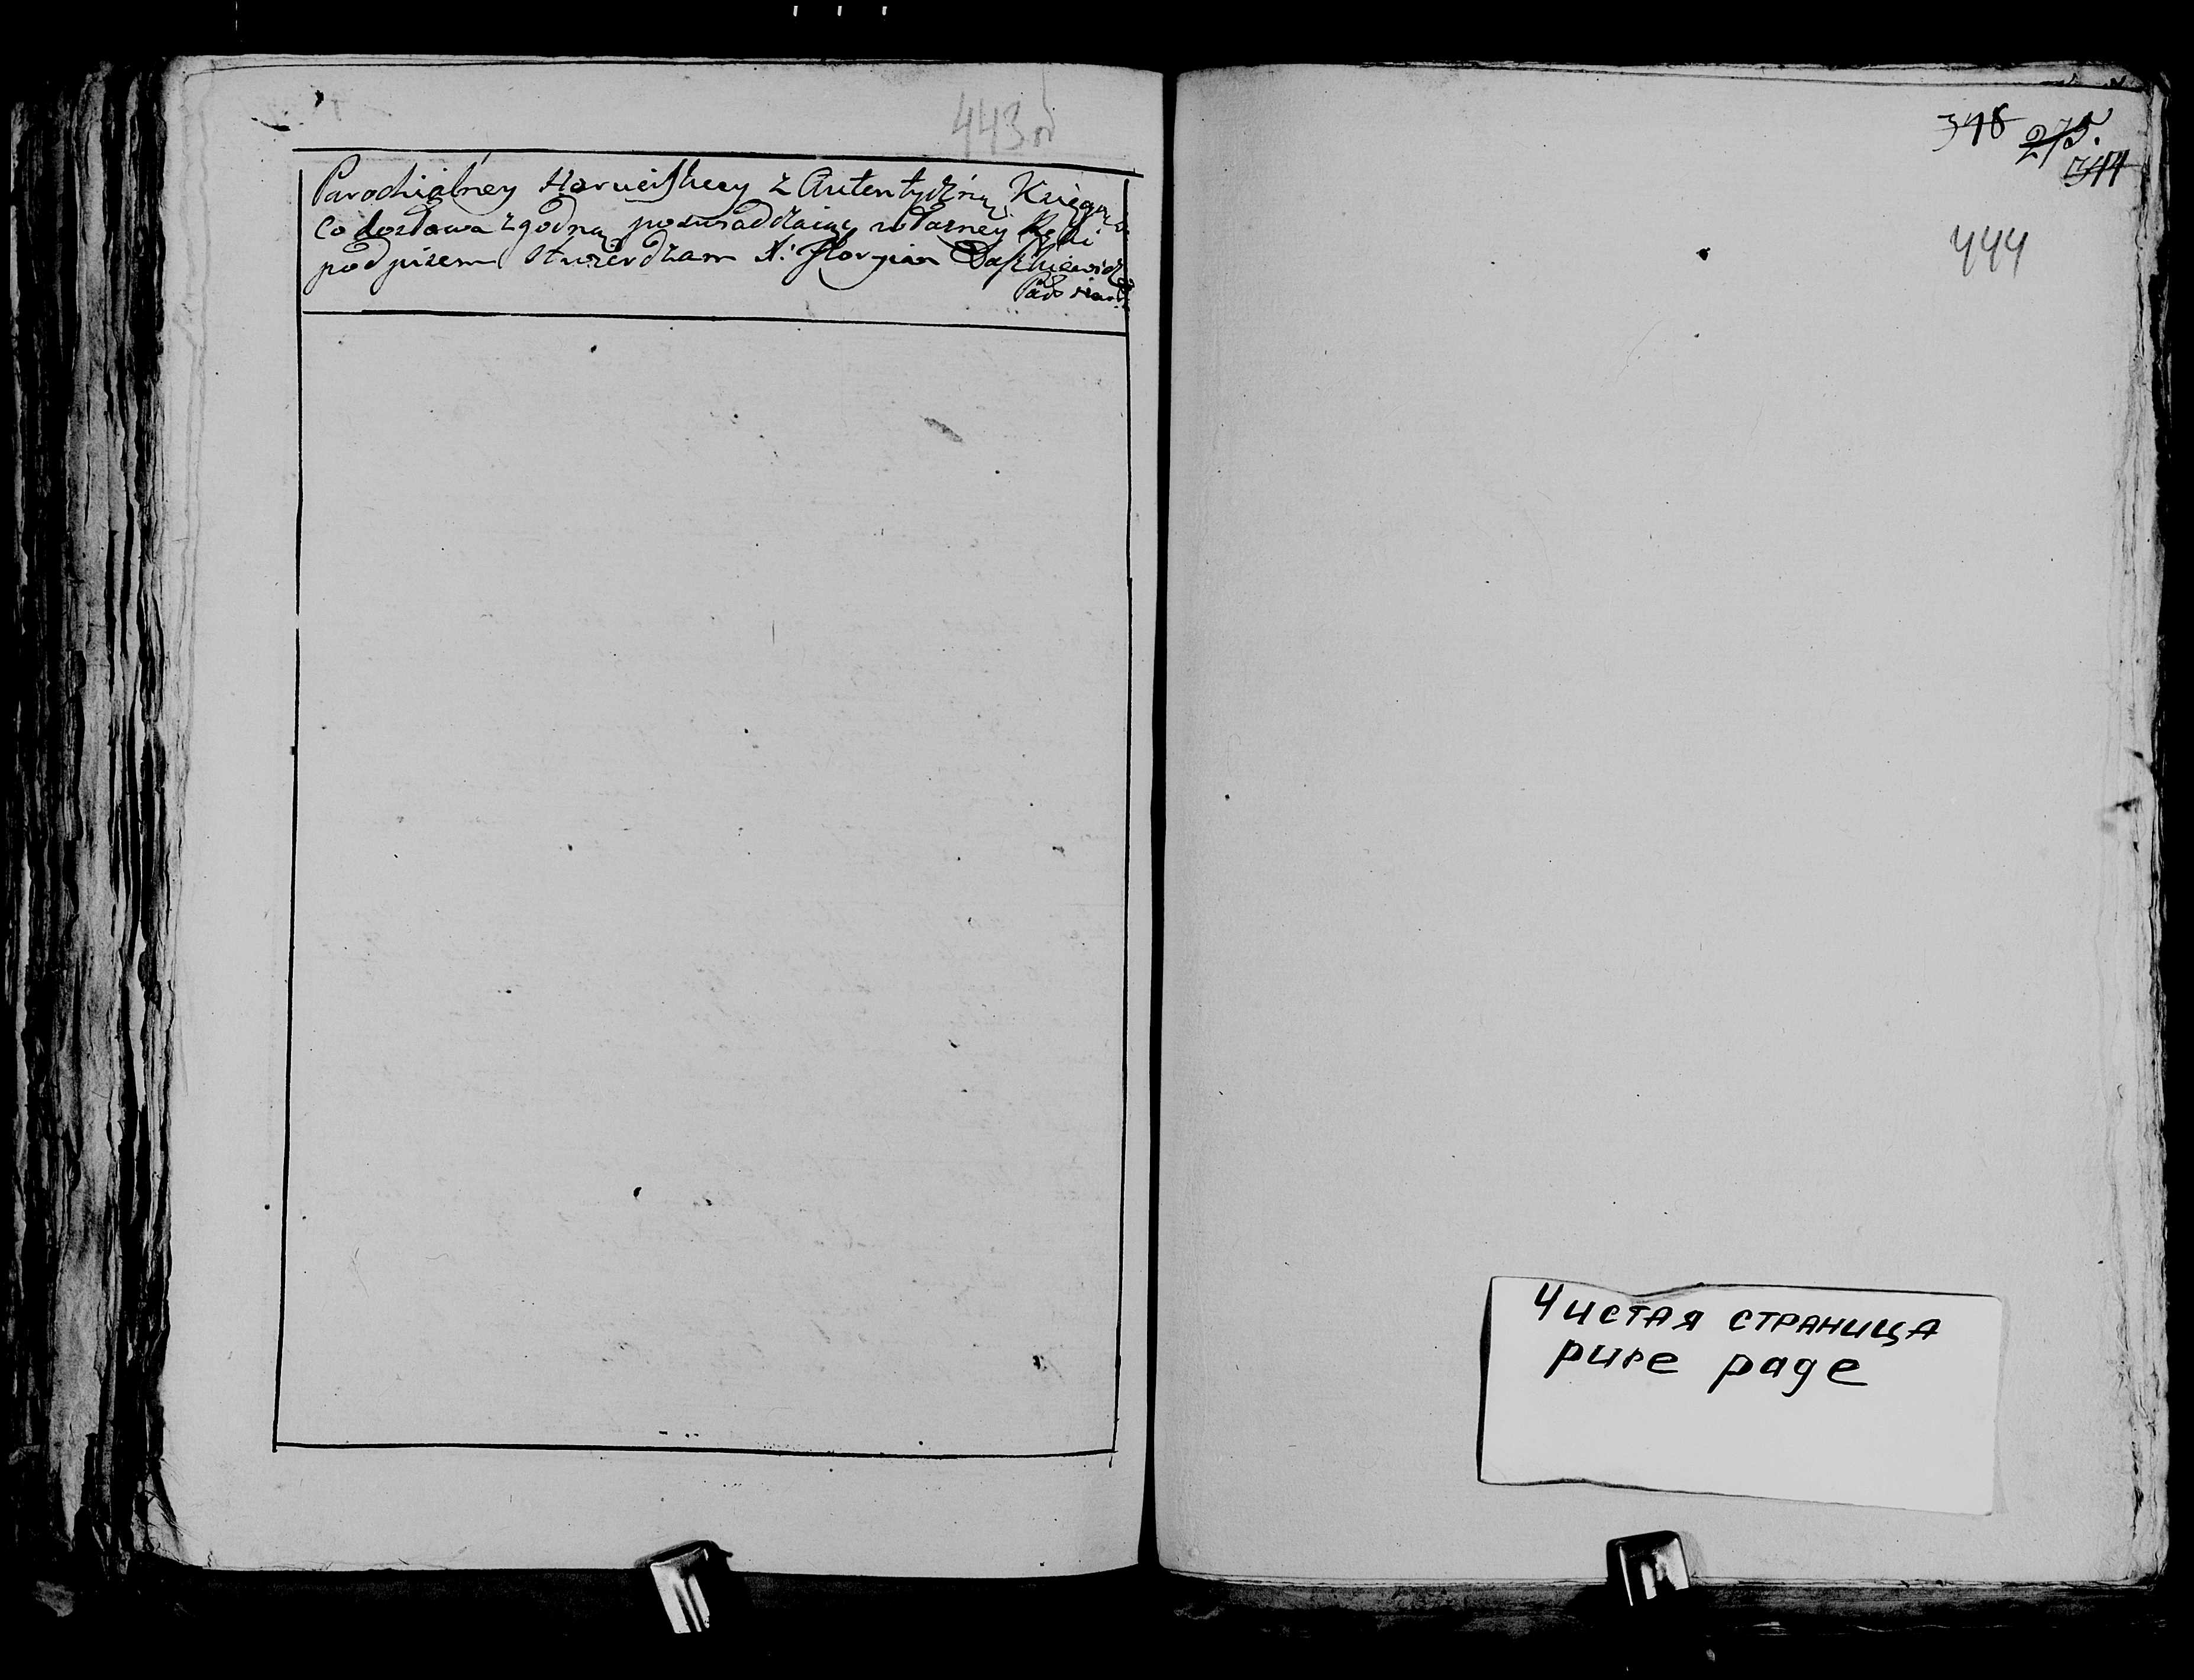 443 об
Parochialney z Autentyczną Xięgą
Co do słowa zgodną poswiadczaiąc własney Ręki
podpisem stwierdzam X. Floryan Daszkiewicz
348 275.
344
444
Чистая страница
pure page